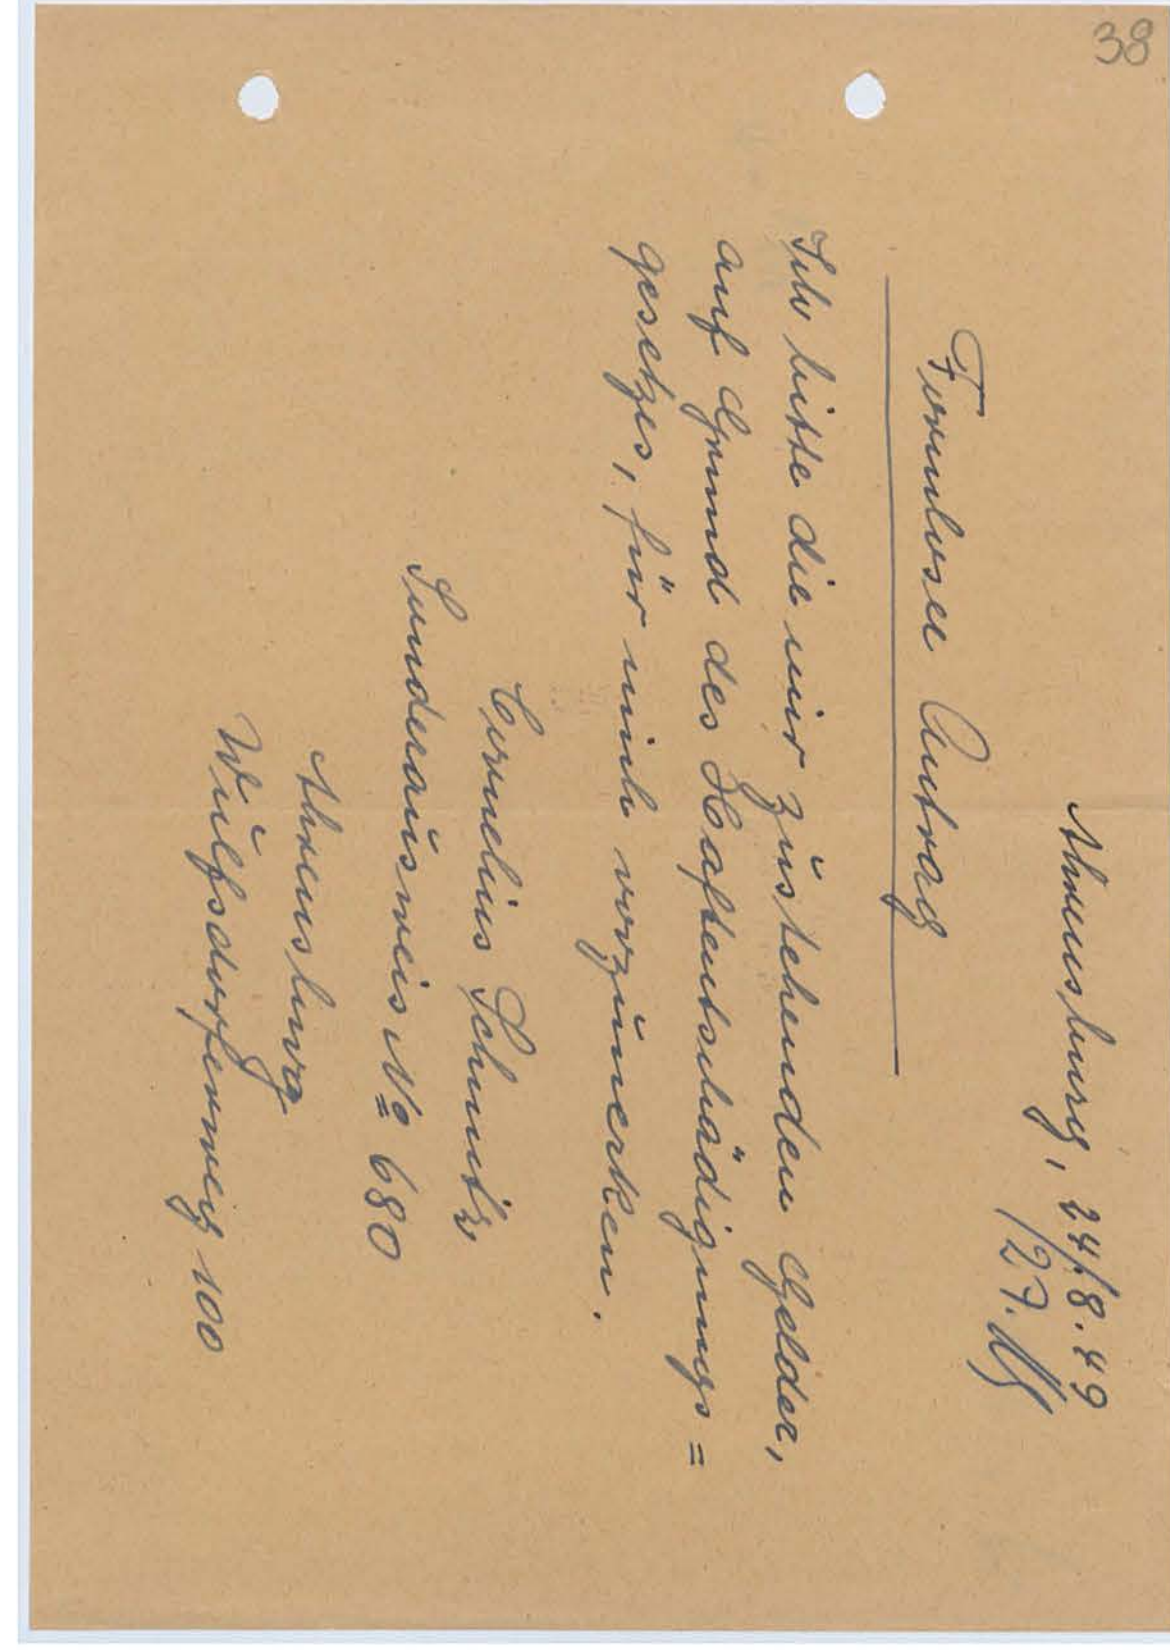 38
Ahrensburg, 24/8.49
/27. 
Formloser Antrag
Ich bitte die mir zustehenden Gelder,
auf Grund des Haftentschädigungs=
gesetzes, für mich vorzumerken.
Cornelius Schmitz
Sonderausweis No 680
Ahrensburg
Wulfsdorferweg 100